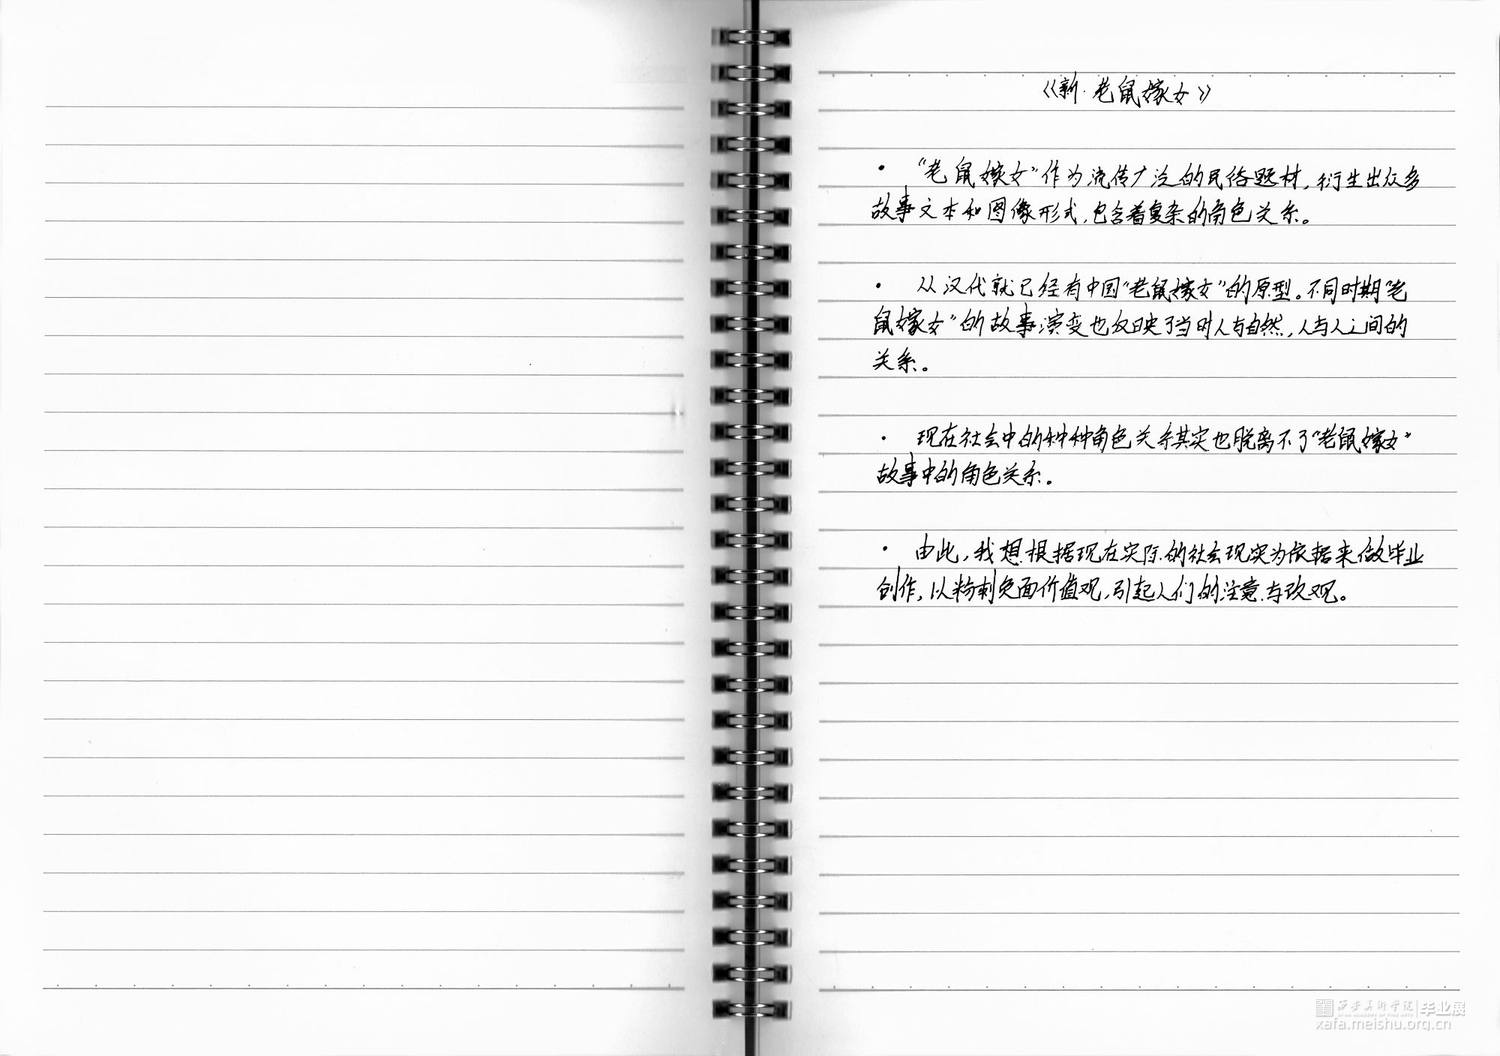 《新·老鼠嫁女》
· “老鼠嫁女”作为流传广泛的民俗题材,衍生出众多
故事文本和图像形式,包含着复杂的角色关系。
· 从汉代就已经有中国“老鼠嫁女”的原型。不同时期“老
鼠嫁女”的故事演变也反映了当时人与自然,人与人之间的
关系。
· 现在社会中的种种角色关系其实也脱离不了“老鼠嫁女”
故事中的角色关系。
· 由此,我想根据现在实际的社会现实为依据来做毕业
创作,以粉刺负面价值观,引起人们的注意与改观。
西安美术学院 毕业展
xafa.meishu.org.cn